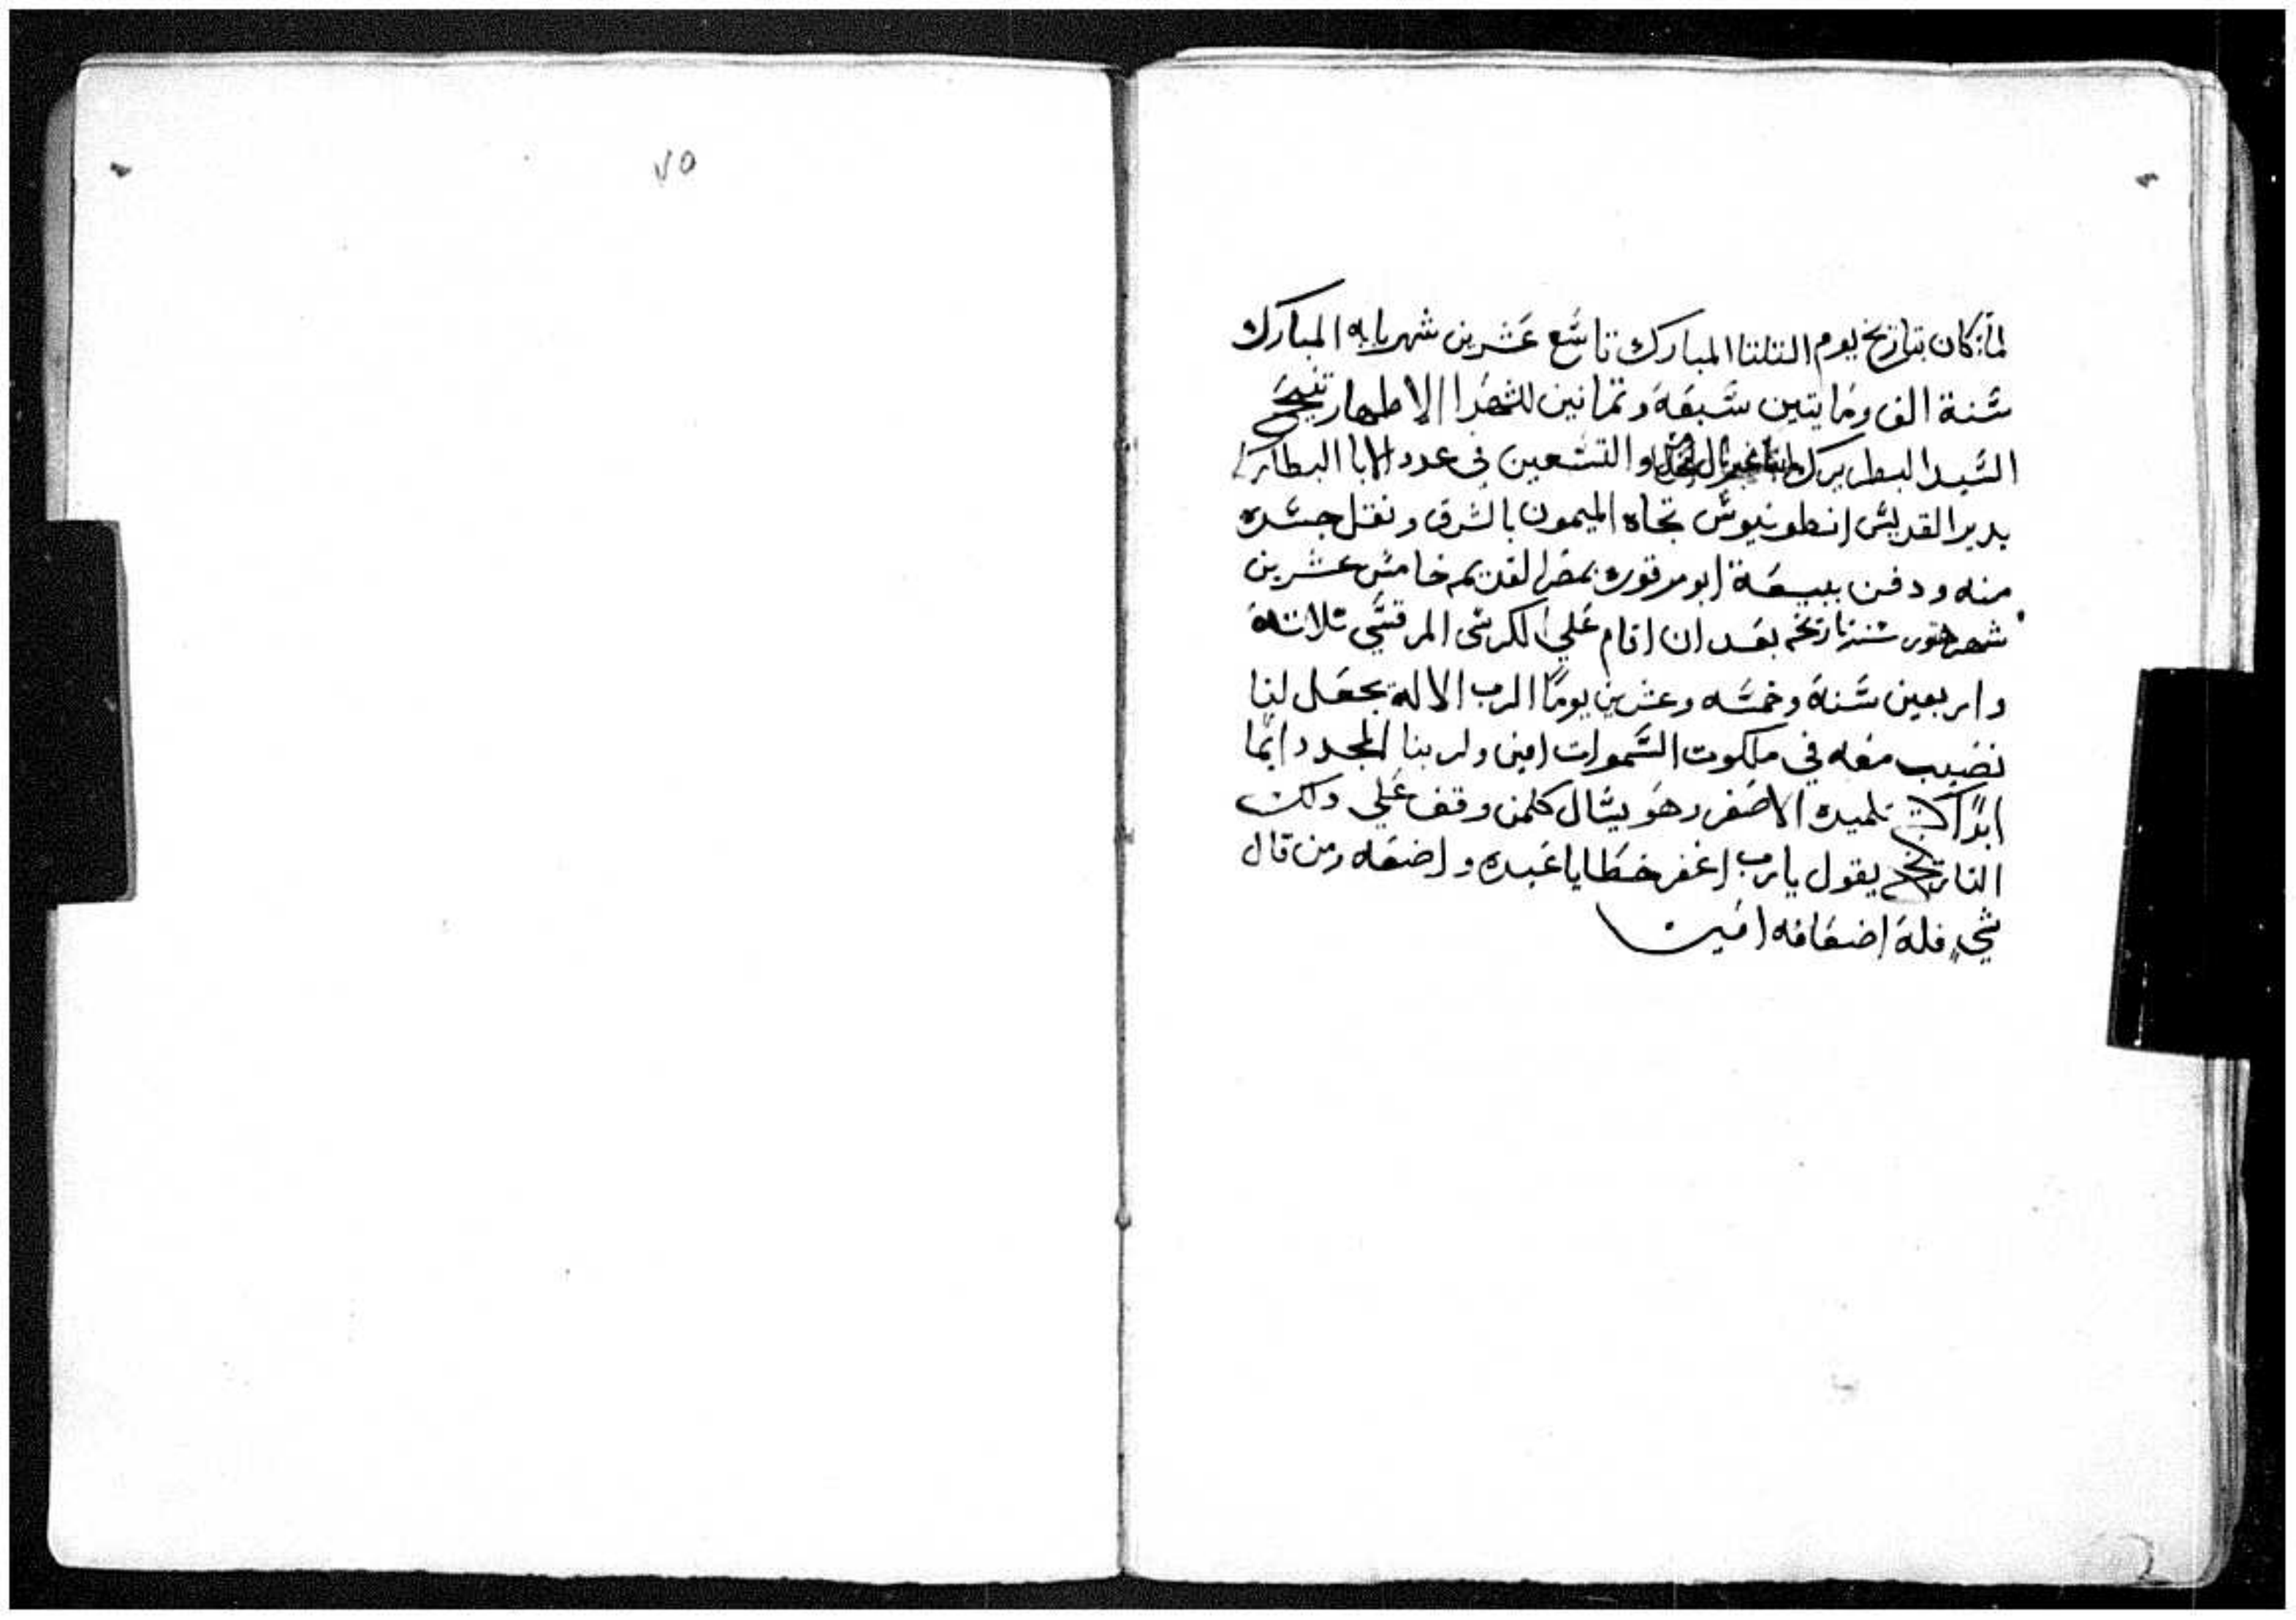 ٧٥
لما كان بتاريخ يوم التلتا المبارك تاسع عشرين شهر بابه المبارك
سنة الف ومايتين سبعة وتمانين للشهدا الاطهار تنيح
السيد البطريرك والتسعين في عدد الابا البطاركه
بدير القديس انطونيوس تجاه الميمون بالشرق ونقل جسده
منه ودفن ببيعة ابو مرقوره بمصر القديمه خامس عشرين
شهر هتور سنة تاريخه بعد ان اقام علي الكرسي المرقسي تلاتة
واربعين سنة وخمسه وعشرين يومًا الرب الاله يجعل لنا
نصيب معه في ملكوت السموات امين ولربنا المجد دايما
ابدًا تلميده الاصغر وهو يسال كلمن وقف علي
التاريخ يقول يارب اغفر خطايا عبدك واضعه ومن قال
شيءٍ فلة اضعافه امين